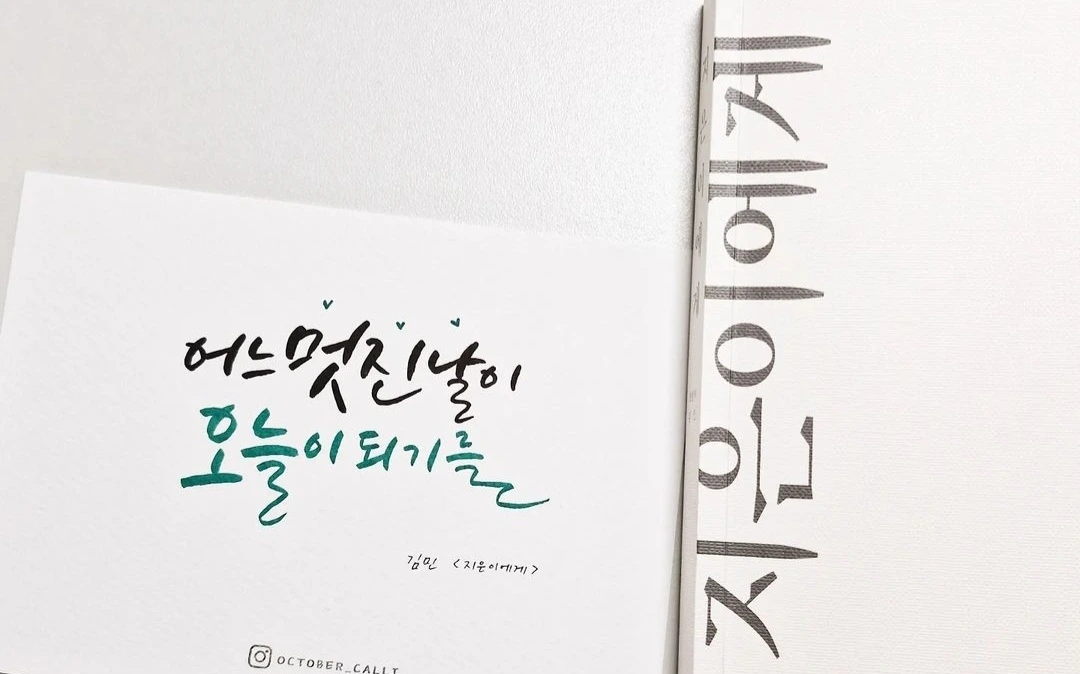 어느 멋진 날이
오늘이 되기를
김민 <지은이에게>
OCTOBER_CALLI
지은이에게
지은이에게